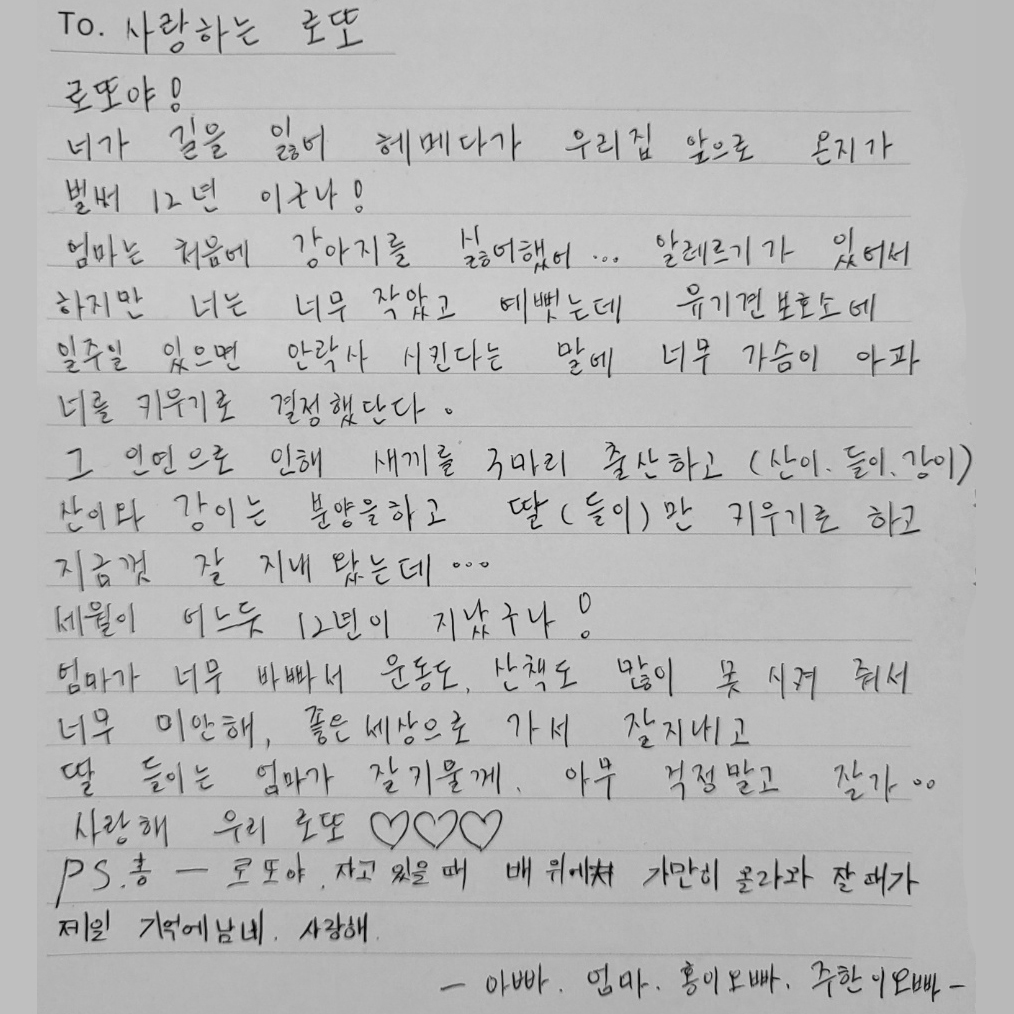 To. 사랑하는 로또
로또야!
너가 길을 잃어 헤메다가 우리집 앞으로 온지가
벌써 12년 이구나!
엄마는 처음에 강아지를 싫어했어... 알레르기가 있어서
하지만 너는 너무 작았고 예뻣는데 유기견보호소에
일주일 있으면 안락사 시킨다는 말에 너무 가슴이 아파
너를 키우기로 결정했단다.
그 인연으로 인해 새끼를 3마리 출산하고 (산이.들이.강이)
산이와 강이는 분양을하고 딸(들이)만 키우기로 하고
지금껏 잘 지내 왔는데...
세월이 어느듯 12년이 지났구나!
엄마가 너무 바빠서 운동도, 산책도 많이 못 시켜 줘서
너무 미안해, 좋은세상으로 가서 잘지내고
딸 들이는 엄마가 잘키울께. 아무 걱정말고 잘가..
사랑해 우리 로또 ♡♡♡
PS.홍 — 로또야. 자고 있을 때 배 위에 가만히 올라와 잘때가
제일 기억에남네. 사랑해.
- 아빠. 엄마. 홍이오빠. 주한이오빠 -